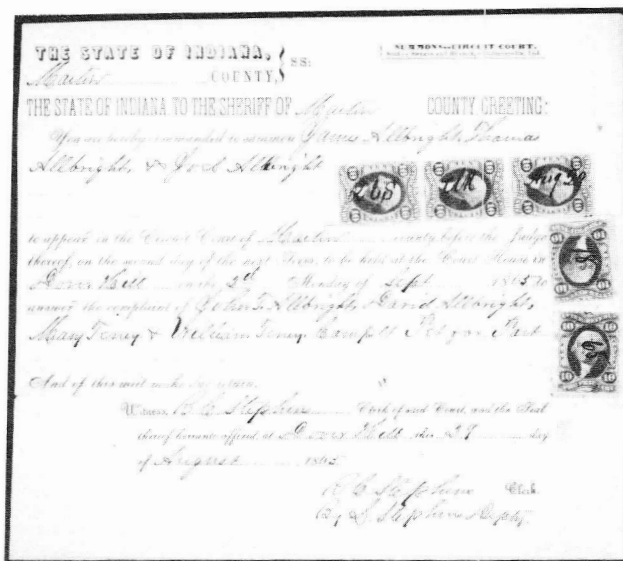 THE STATE OF INDIANA, } SS:
Martin COUNTY,
SUMMONS—CIRCUIT COURT.
THE STATE OF INDIANA TO THE SHERIFF OF Martin COUNTY GREETING:
You are hereby commanded to summon James Allbright, Thomas
Allbright, & Joel Allbright
to appear in the Circuit Court of Martin county, before the Judge
thereof, on the second day of the next Term, to be held at the Court House in
Dover Hill on the 3d Monday of Sept 1865 to
answer the complaint of John T. Allbright, David Allbright,
Mary Toney & William Toney Pet for Part
And of this writ make due return.
Witness, R C Stephens Clerk of said Court, and the Seal
thereof hereunto affixed at Dover Hill this 29 day
of August 1865
R C Stephens Clerk
By S. Stephens Depty.